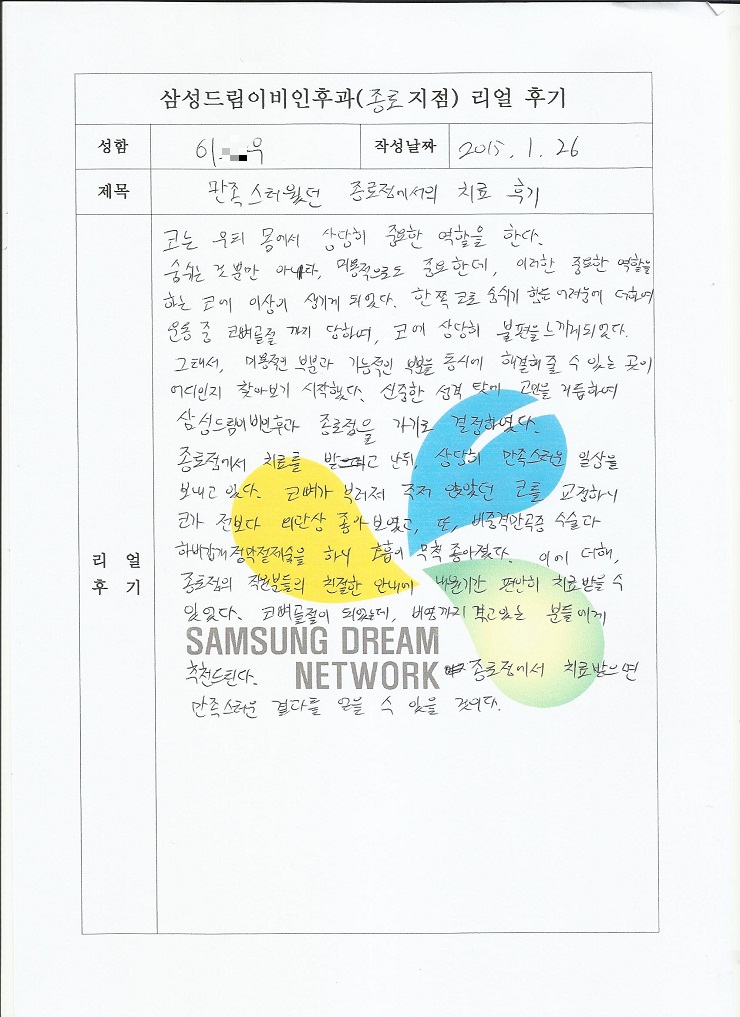 삼성드림이비인후과(종로 지점) 리얼 후기
성함 이 우 작성날짜 2015. 1. 26
제목 만족스러웠던 종로점에서의 치료 후기
리 얼
후 기
코는 우리 몸에서 상당히 중요한 역할을 한다.
숨쉬는 것 뿐만 아니라, 미용적으로도 중요한데, 이러한 중요한 역할을
하는 코에 이상이 생기게 되었다. 한쪽 코로 숨쉬기 힘든 어려움에 더하여
운동 중 코뼈골절 까지 당하여, 코에 상당히 불편을 느끼게 되었다.
그래서, 미용적인 부분과 기능적인 부분을 동시에 해결해 줄 수 있는 곳이
어디인지 찾아보기 시작했다. 신중한 성격 탓에 고민을 거듭하여
삼성드림이비인후과 종로점을 가기로 결정하였다.
종로점에서 치료를 받고 난뒤, 상당히 만족스러운 일상을
보내고 있다. 코뼈가 부러져 주저 앉았던 코를 교정하니
코가 전보다 외관상 좋아 보였고, 또, 비중격만곡증 수술과
하비갑개 점막절제술을 하니 호흡이 무척 좋아졌다. 이에 더해,
종로점의 직원분들의 친절한 안내에 내원기간 편안히 치료받을 수
있었다. 코뼈골절이 되었는데, 비염까지 겪고있는 분들에게
추천드린다. 종로점에서 치료받으면
만족스러운 결과를 얻을 수 있을 것이다.
SAMSUNG DREAM
NETWORK